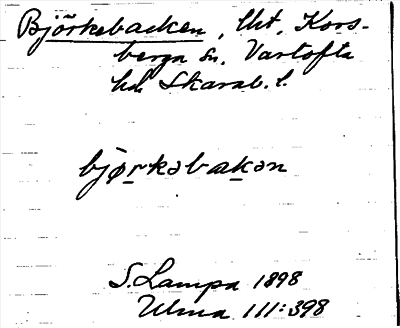 Björkebacken, lht, Kors-
berga sn, Vartofta
hd Skarab. l.
bjørkəbakən
S. Lampa 1898
Ulma 111:398